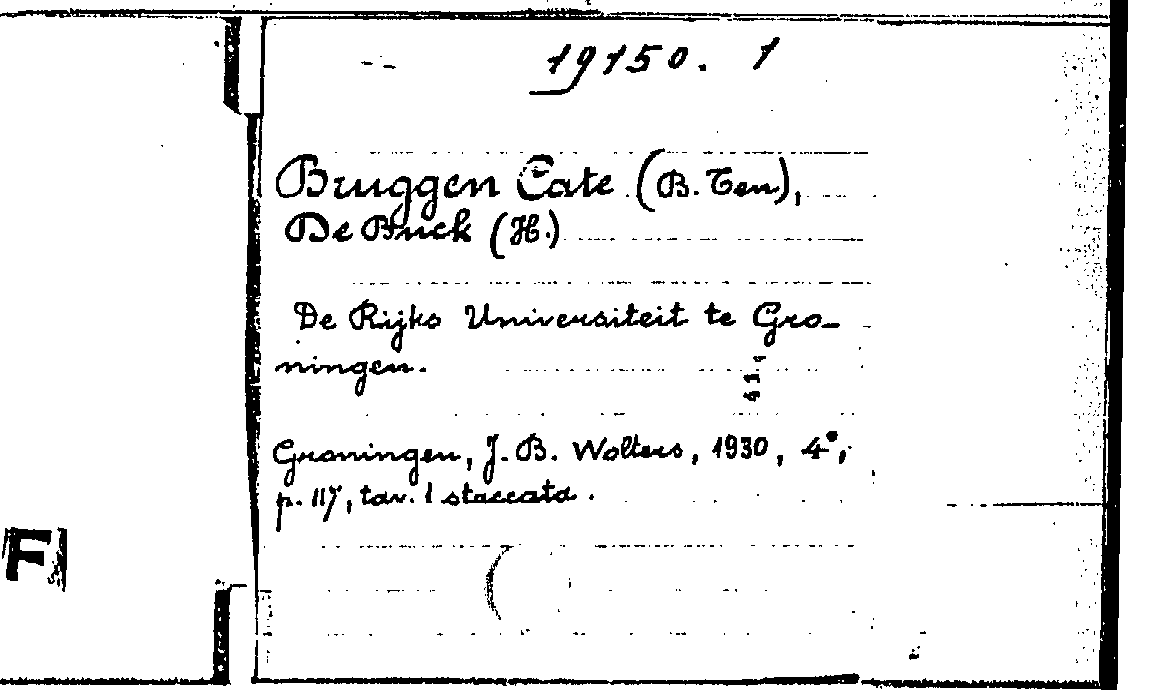 19150. 1
Bruggen Cate (B. Ten),
De Buck (H.)
De Rijks Universiteit te Gro-
ningen.
Groningen, J. B. Wolters, 1930, 4°,
p. 117, tav. 1 staccata.
F